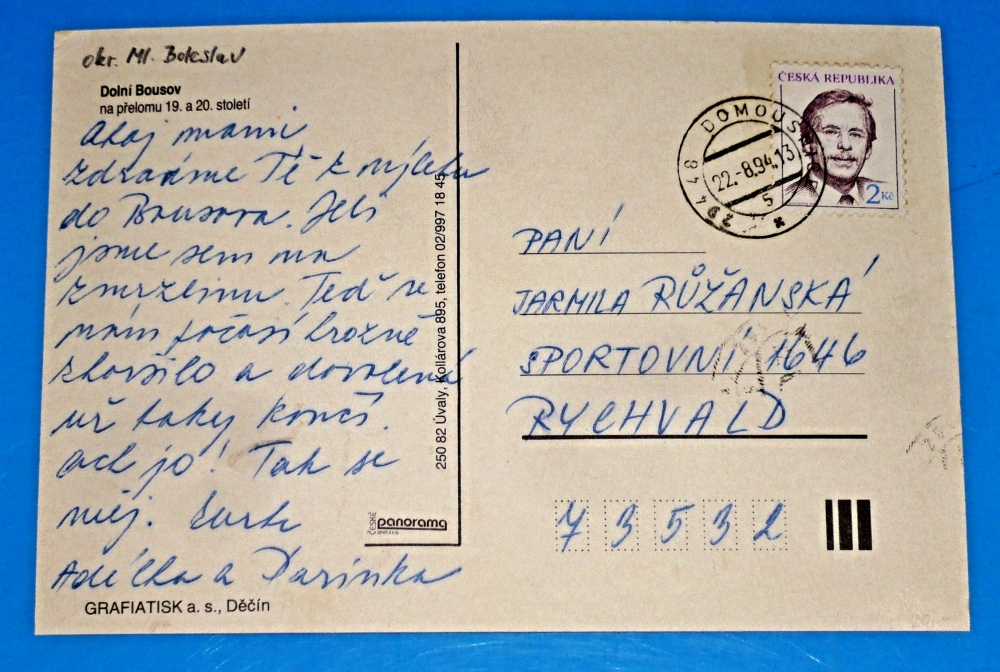 okr. Ml. Boleslav
Dolní Bousov
na přelomu 19. a 20. století
Ahoj mami
zdravíme Tě z výletu
do Bousova. Jeli
jsme sem na
zmrzlinu. Teď se
nám počasí hrozně
zhoršilo a dovolená
už taky končí.
ach jo! Tak se
měj.
Adélka a Darinka
GRAFIATISK a. s., Děčín
250 82 Úvaly, Kollárova 895, telefon 02/997 18 45
ČESKÉ
panorama
ČESKÁ REPUBLIKA
2 Kč
22.-8.94.13
294 48
PANÍ
JARMILA RŮŽANSKÁ
SPORTOVNÍ 1646
RYCHVALD
73532